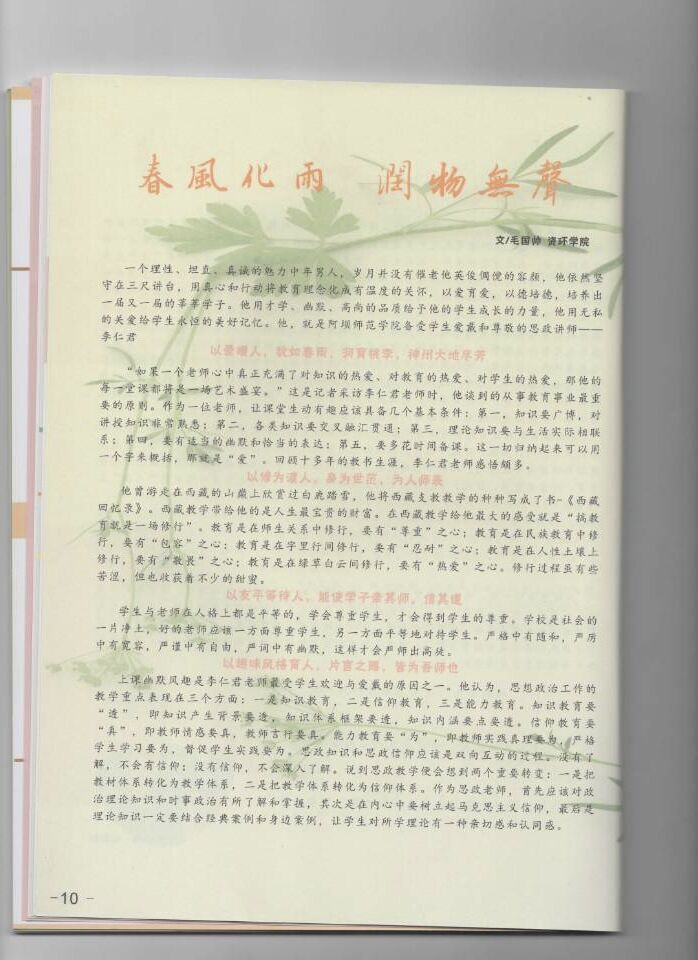 春風化雨 潤物無聲
文/毛国帅 资环学院
一个理性、坦直、真诚的魅力中年男人，岁月并没有催老他英俊倜傥的容颜，他依然坚
守在三尺讲台，用真心和行动将教育理念化成有温度的关怀，以爱育爱，以德培德，培养出
一届又一届的莘莘学子。他用才学、幽默、高尚的品质给予他的学生成长的力量，他用无私
的关爱给学生永恒的美好记忆。他，就是阿坝师范学院备受学生爱戴和尊敬的思政讲师——
李仁君
以爱暖人，犹如春雨，润育桃李，神州大地尽芳
“如果一个老师心中真正充满了对知识的热爱、对教育的热爱、对学生的热爱，那他的
每一堂课都将是一场艺术盛宴。”这是记者采访李仁君老师时，他谈到的从事教育事业最重
要的原则。作为一位老师，让课堂生动有趣应该具备几个基本条件：第一，知识要广博，对
讲授知识非常熟悉；第二，各类知识要交叉融汇贯通；第三，理论知识要与生活实际相联
系；第四，要有适当的幽默和恰当的表达；第五，要多花时间备课。这一切归纳起来可以用
一个字来概括，那就是“爱”。回顾十多年的教书生涯，李仁君老师感悟颇多。
以修为渡人，身为世范，为人师表
他曾游走在西藏的山巅上欣赏过白鹿踏雪，他将西藏支教教学的种种写成了书-《西藏
回忆录》。西藏教学带给他的是人生最宝贵的财富。在西藏教学给他最大的感受就是“搞教
育就是一场修行”。教育是在师生关系中修行，要有“尊重”之心；教育是在民族教育中修
行，要有“包容”之心；教育是在字里行间修行，要有“忍耐”之心；教育是在人性土壤上
修行，要有“敬畏”之心；教育是在绿草白云间修行，要有“热爱”之心。修行过程虽有些
苦涩，但也收获着不少的甜蜜。
以友平等待人，能使学子亲其师，信其道
学生与老师在人格上都是平等的，学会尊重学生，才会得到学生的尊重。学校是社会的
一片净土，好的老师应该一方面尊重学生，另一方面平等地对待学生。严格中有随和，严厉
中有宽容，严谨中有自由，严词中有幽默，这样才会严师出高徒。
以趣味风格育人，片言之赐，皆为吾师也
上课幽默风趣是李仁君老师最受学生欢迎与爱戴的原因之一。他认为，思想政治工作的
教学重点表现在三个方面：一是知识教育，二是信仰教育，三是能力教育。知识教育要
“透”，即知识产生背景要透，知识体系框架要透，知识内涵要点要透。信仰教育要
“真”，即教师情感要真，教师言行要真。能力教育要“为”，即教师实践真理要为，严格
学生学习要为，督促学生实践要为。思政知识和思政信仰应该是双向互动的过程。没有了
解，不会有信仰；没有信仰，不会深入了解。说到思政教学便会想到两个重要转变：一是把
教材体系转化为教学体系，二是把教学体系转化为信仰体系。作为思政老师，首先应该对政
治理论知识和时事政治有所了解和掌握，其次是在内心中要树立起马克思主义信仰，最后是
理论知识一定要结合经典案例和身边案例，让学生对所学理论有一种亲切感和认同感。
-10 -